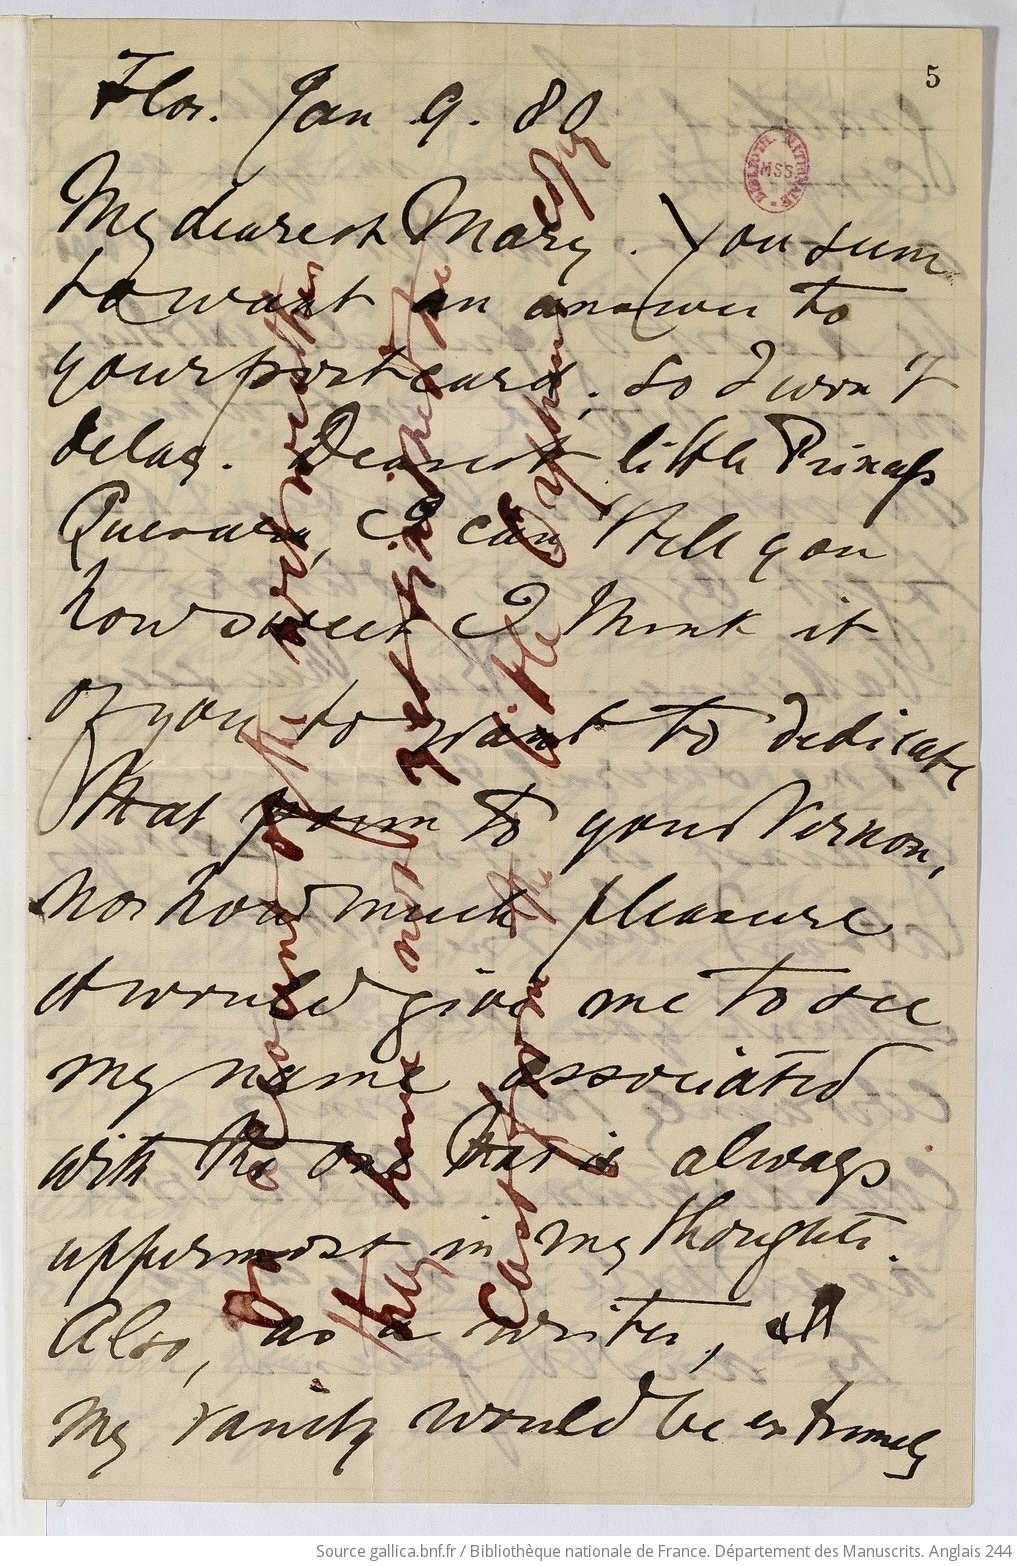 5
BIBLIOTH. NATIONALE
MSS.
Flor. Jan 9. 80
My dearest Mary. You seem
to want an answer to
your postcard, so I won't
delay. Dearest little Princess
I can't tell you
how sweet I think it
of you to want to dedicate
that poem to your Vernon,
nor how much pleasure
it would give me to see
my name associated
with the one that is always
uppermost in my thoughts.
Also, as a writer,
my vanity would be extremely
On account of the weather
they have not yet
Cast from the little
Source gallica.bnf.fr / Bibliothèque nationale de France. Département des Manuscrits. Anglais 244